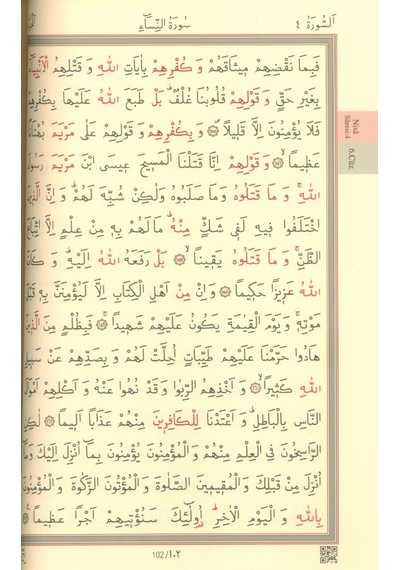 اَلسُّورَةُ ٤
سُورَةُ النِّسَاءِ
فَبِمَا نَقْضِهِمْ مِيثَاقَهُمْ وَ كُفْرِهِمْ بِاٰيَاتِ اللّٰهِ وَ قَتْلِهِمُ الْاَنْبِيَٓاءَ
بِغَيْرِ حَقٍّ وَ قَوْلِهِمْ قُلُوبُنَا غُلْفٌؕ بَلْ طَبَعَ اللّٰهُ عَلَيْهَا بِكُفْرِهِمْ
فَلَا يُؤْمِنُونَ اِلَّا قَلِيلًا ﴿١٥٥﴾ وَ بِكُفْرِهِمْ وَ قَوْلِهِمْ عَلٰى مَرْيَمَ بُهْتَانًا
عَظِيمًا ﴿١٥٦﴾ وَ قَوْلِهِمْ اِنَّا قَتَلْنَا الْمَسِيحَ عِيسَى ابْنَ مَرْيَمَ رَسُولَ
اللّٰهِۚ وَ مَا قَتَلُوهُ وَ مَا صَلَبُوهُ وَ لٰكِنْ شُبِّهَ لَهُمْؕ وَ اِنَّ الَّذِينَ
اخْتَلَفُوا فِيهِ لَفِي شَكٍّ مِنْهُؕ مَا لَهُمْ بِهِ مِنْ عِلْمٍ اِلَّا اتِّبَاعَ
الظَّنِّۚ وَ مَا قَتَلُوهُ يَقِينًا ﴿١٥٧﴾ بَلْ رَفَعَهُ اللّٰهُ اِلَيْهِؕ وَ كَانَ
اللّٰهُ عَزِيزًا حَكِيمًا ﴿١٥٨﴾ وَ اِنْ مِنْ اَهْلِ الْكِتَابِ اِلَّا لَيُؤْمِنَنَّ بِهِ قَبْلَ
مَوْتِهِۚ وَ يَوْمَ الْقِيٰمَةِ يَكُونُ عَلَيْهِمْ شَهِيدًاۚ ﴿١٥٩﴾ فَبِظُلْمٍ مِنَ الَّذِينَ
هَادُوا حَرَّمْنَا عَلَيْهِمْ طَيِّبَاتٍ اُحِلَّتْ لَهُمْ وَ بِصَدِّهِمْ عَنْ سَبِيلِ
اللّٰهِ كَثِيرًاۙ ﴿١٦٠﴾ وَ اَخْذِهِمُ الرِّبٰوا وَ قَدْ نُهُوا عَنْهُ وَ اَكْلِهِمْ اَمْوَالَ
النَّاسِ بِالْبَاطِلِؕ وَ اَعْتَدْنَا لِلْكَافِرِينَ مِنْهُمْ عَذَابًا اَلِيمًا ﴿١٦١﴾ لٰكِنِ
الرَّاسِخُونَ فِي الْعِلْمِ مِنْهُمْ وَ الْمُؤْمِنُونَ يُؤْمِنُونَ بِمَٓا اُنْزِلَ اِلَيْكَ وَ مَٓا
اُنْزِلَ مِنْ قَبْلِكَ وَ الْمُقِيمِينَ الصَّلٰوةَ وَ الْمُؤْتُونَ الزَّكٰوةَ وَ الْمُؤْمِنُونَ
بِاللّٰهِ وَ الْيَوْمِ الْاٰخِرِؕ اُولٰٓئِكَ سَنُؤْتِيهِمْ اَجْرًا عَظِيمًا ﴿١٦٢﴾
Nisâ
Sûresi:4
6.Cüz
102/١٠٢